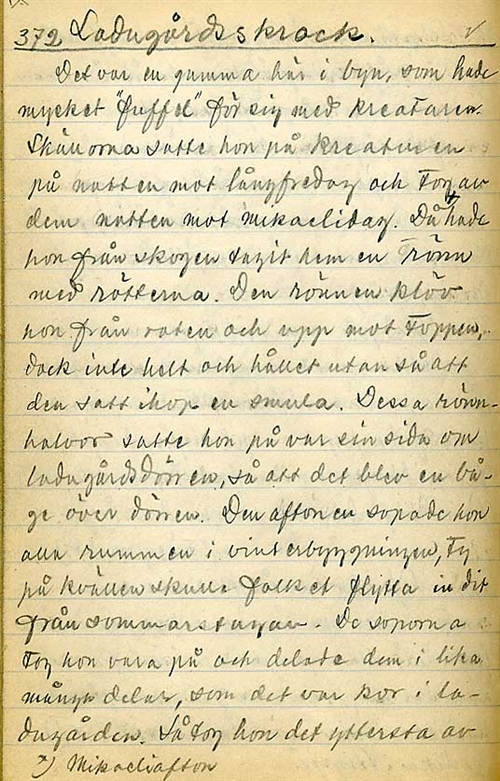 372 Ladugårdsskrock.
Det var en gumma här i byn, som hade
mycket "fuffel" för sig med kreaturen.
Skällorna satte hon på kreaturen
på natten mot långfredag och tog av
dem natten mot mikaelidag. Då x) hade
hon från skogen tagit hem en rönn
med rötterna. Den rönnen klöv
hon från roten och upp mot toppen,
dock inte helt och hållet utan så att
den satt ihop en smula. Dessa rönn-
halvor satte hon på var sin sida om
ladugårdsdörren, så att det blev en bå-
ge över dörren. Den aftonen sopade hon
alla rummen i vinterbyggningen, ty
på kvällen skulle folket flytta in dit
från sommarstugan. De soporna
tog hon vara på och delade dem i lika
många delar, som det var kor i la-
dugården. Så tog hon det yttersta av
x) Mikaeliafton